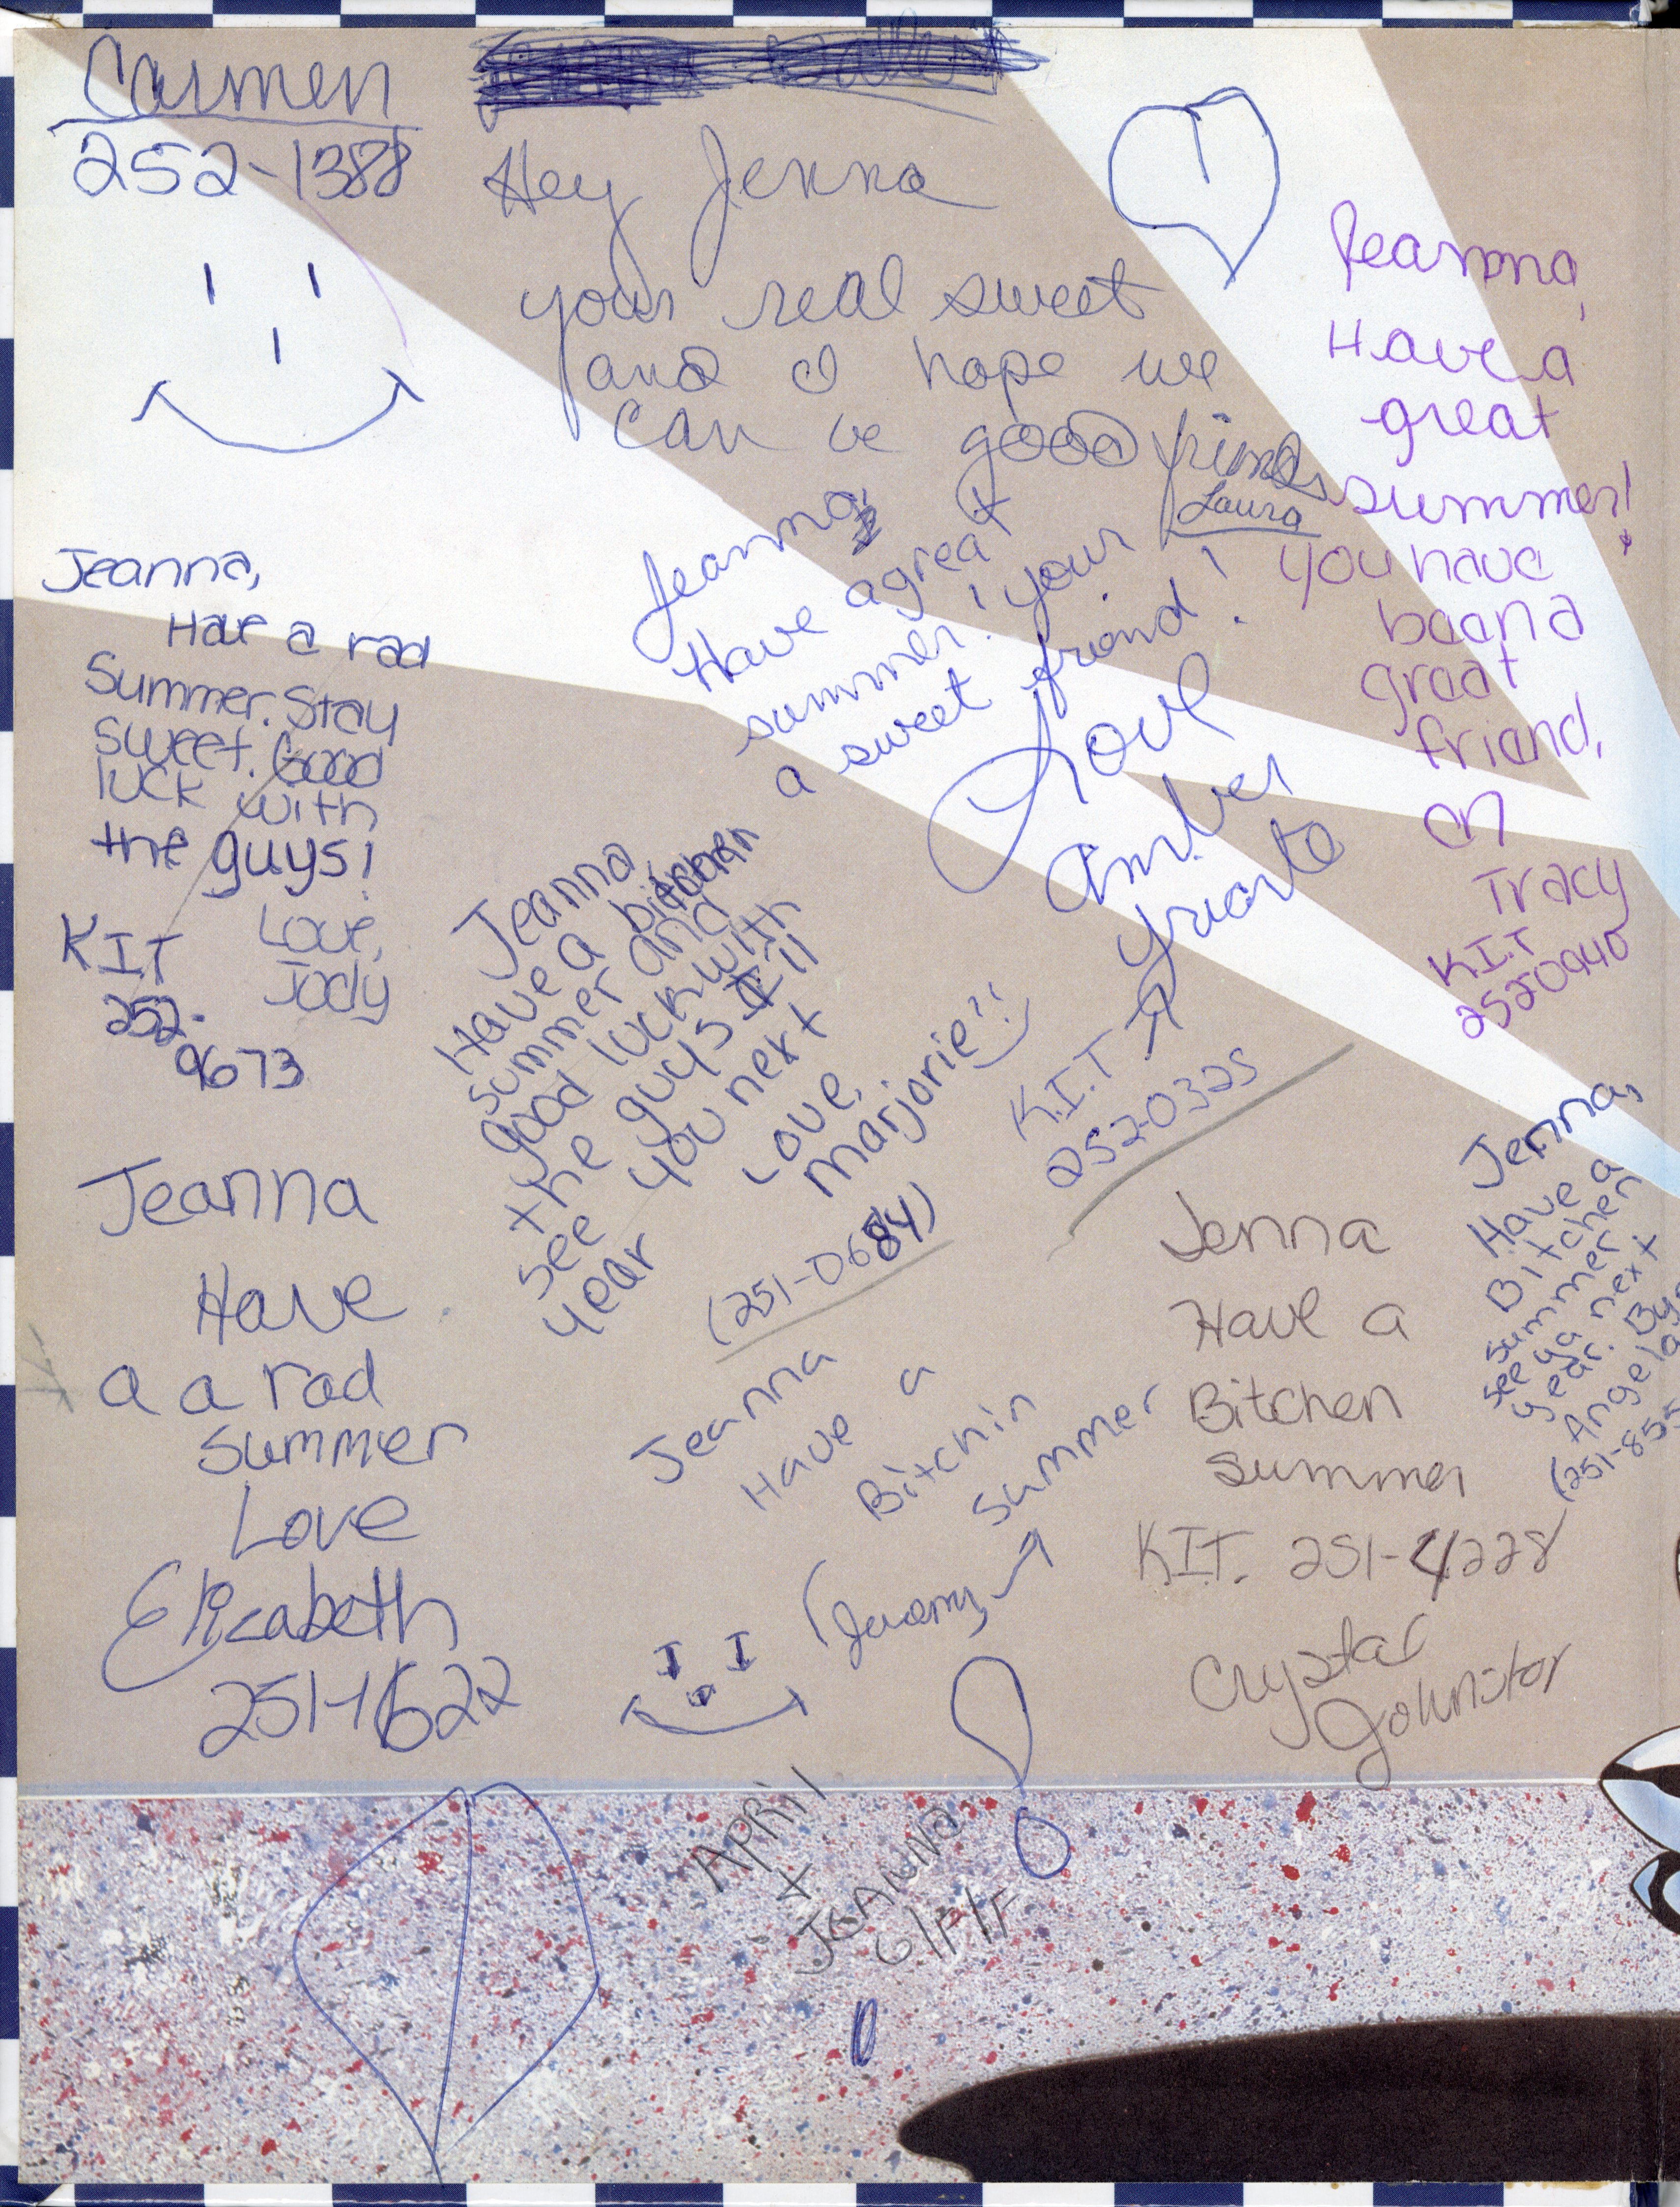 Carmen
252-1388
Hey Jenna
your real sweet
and I hope we
can be good friends
Laura
Jeanna,
Have a
great
summer!
you have
been a
great
friend,
Tracy
K.I.T
2520940
Jeanna,
Have a rad
Summer. Stay
sweet. Good
luck with
the guys!
Love,
Jody
KIT
252-
9673
Jeanna,
Have a great
summer! your
a sweet friend!
Love
Amber
K.I.T
252-0325
Jeanna
Have a bitchen
summer and
good luck with
the guys
see you next
year
Love,
Marjorie
(251-0684)
Jeanna
Have
a a rad
Summer
Love
Elizabeth
251-1622
Jeanna
Have a
Bitchin
summer
(Jeremy
Jenna
Have a
Bitchen
Summer
KIT. 251-4228
Crystal
Johnston
Jenna,
Have a
Bitchen
summer
see ya next
year.
Angela
(251-855
April
+
Jeanna